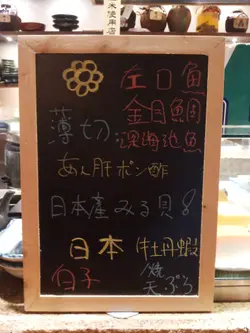 左口魚
金目鯛
薄切 深海池魚
あん肝ポン酢
日本産みる貝
日本 牡丹蝦
白子 燒 天ぷら